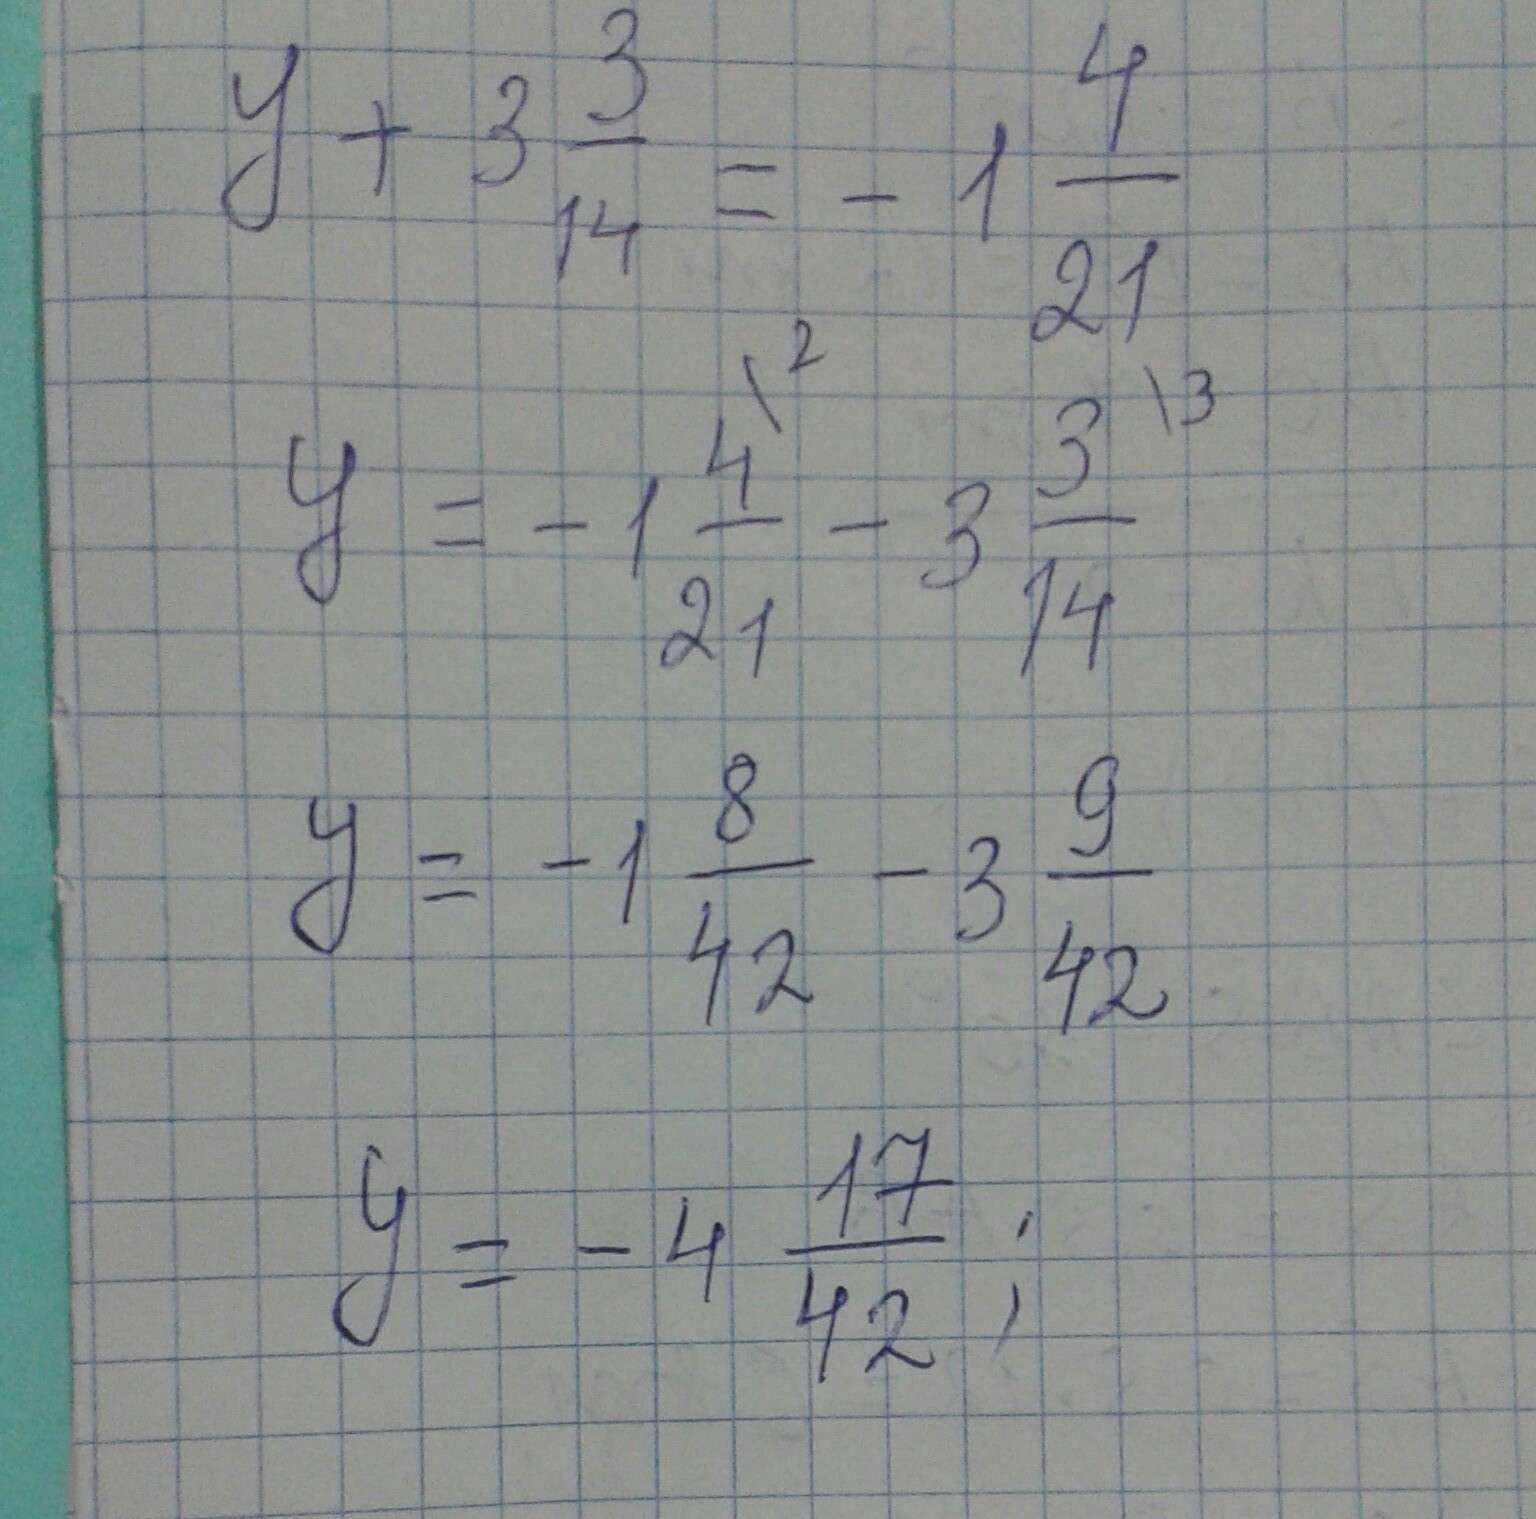 y + 3 3/14 = - 1 4/21
y = - 1 4\2/21 - 3 3\3/14
y = - 1 8/42 - 3 9/42
y = - 4 17/42 ;